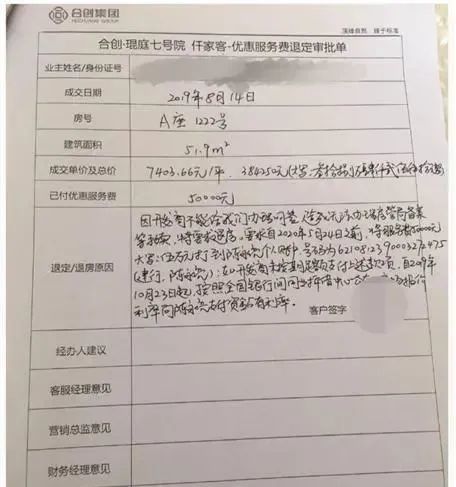 合创集团
HECHUANG GROUP
合创·琨庭七号院 仟家客-优惠服务费退定审批单
业主姓名/身份证号
成交日期 2019年8月14日
房号 A座1222号
建筑面积 51.9m²
成交单价及总价 7403.66元/坪. 384250元(大写:叁拾捌万肆仟贰佰伍拾
已付优惠服务费 50000元
退定/退房原因
因开发商不能给我们办理网签
等手续,特要求退房,要求自2020年5月24日之前,将服务费50000元
大写:伍万元打到陈 个人账户,号码为
(建行,陈 );如开发商未按期足额支付上述款项,自2019年
10月23日起,按照全国银行间同业拆借中心
利率向陈 支付资金占有利率.
客户签字
经办人建议
客服经理意见
营销总监意见
财务经理意见